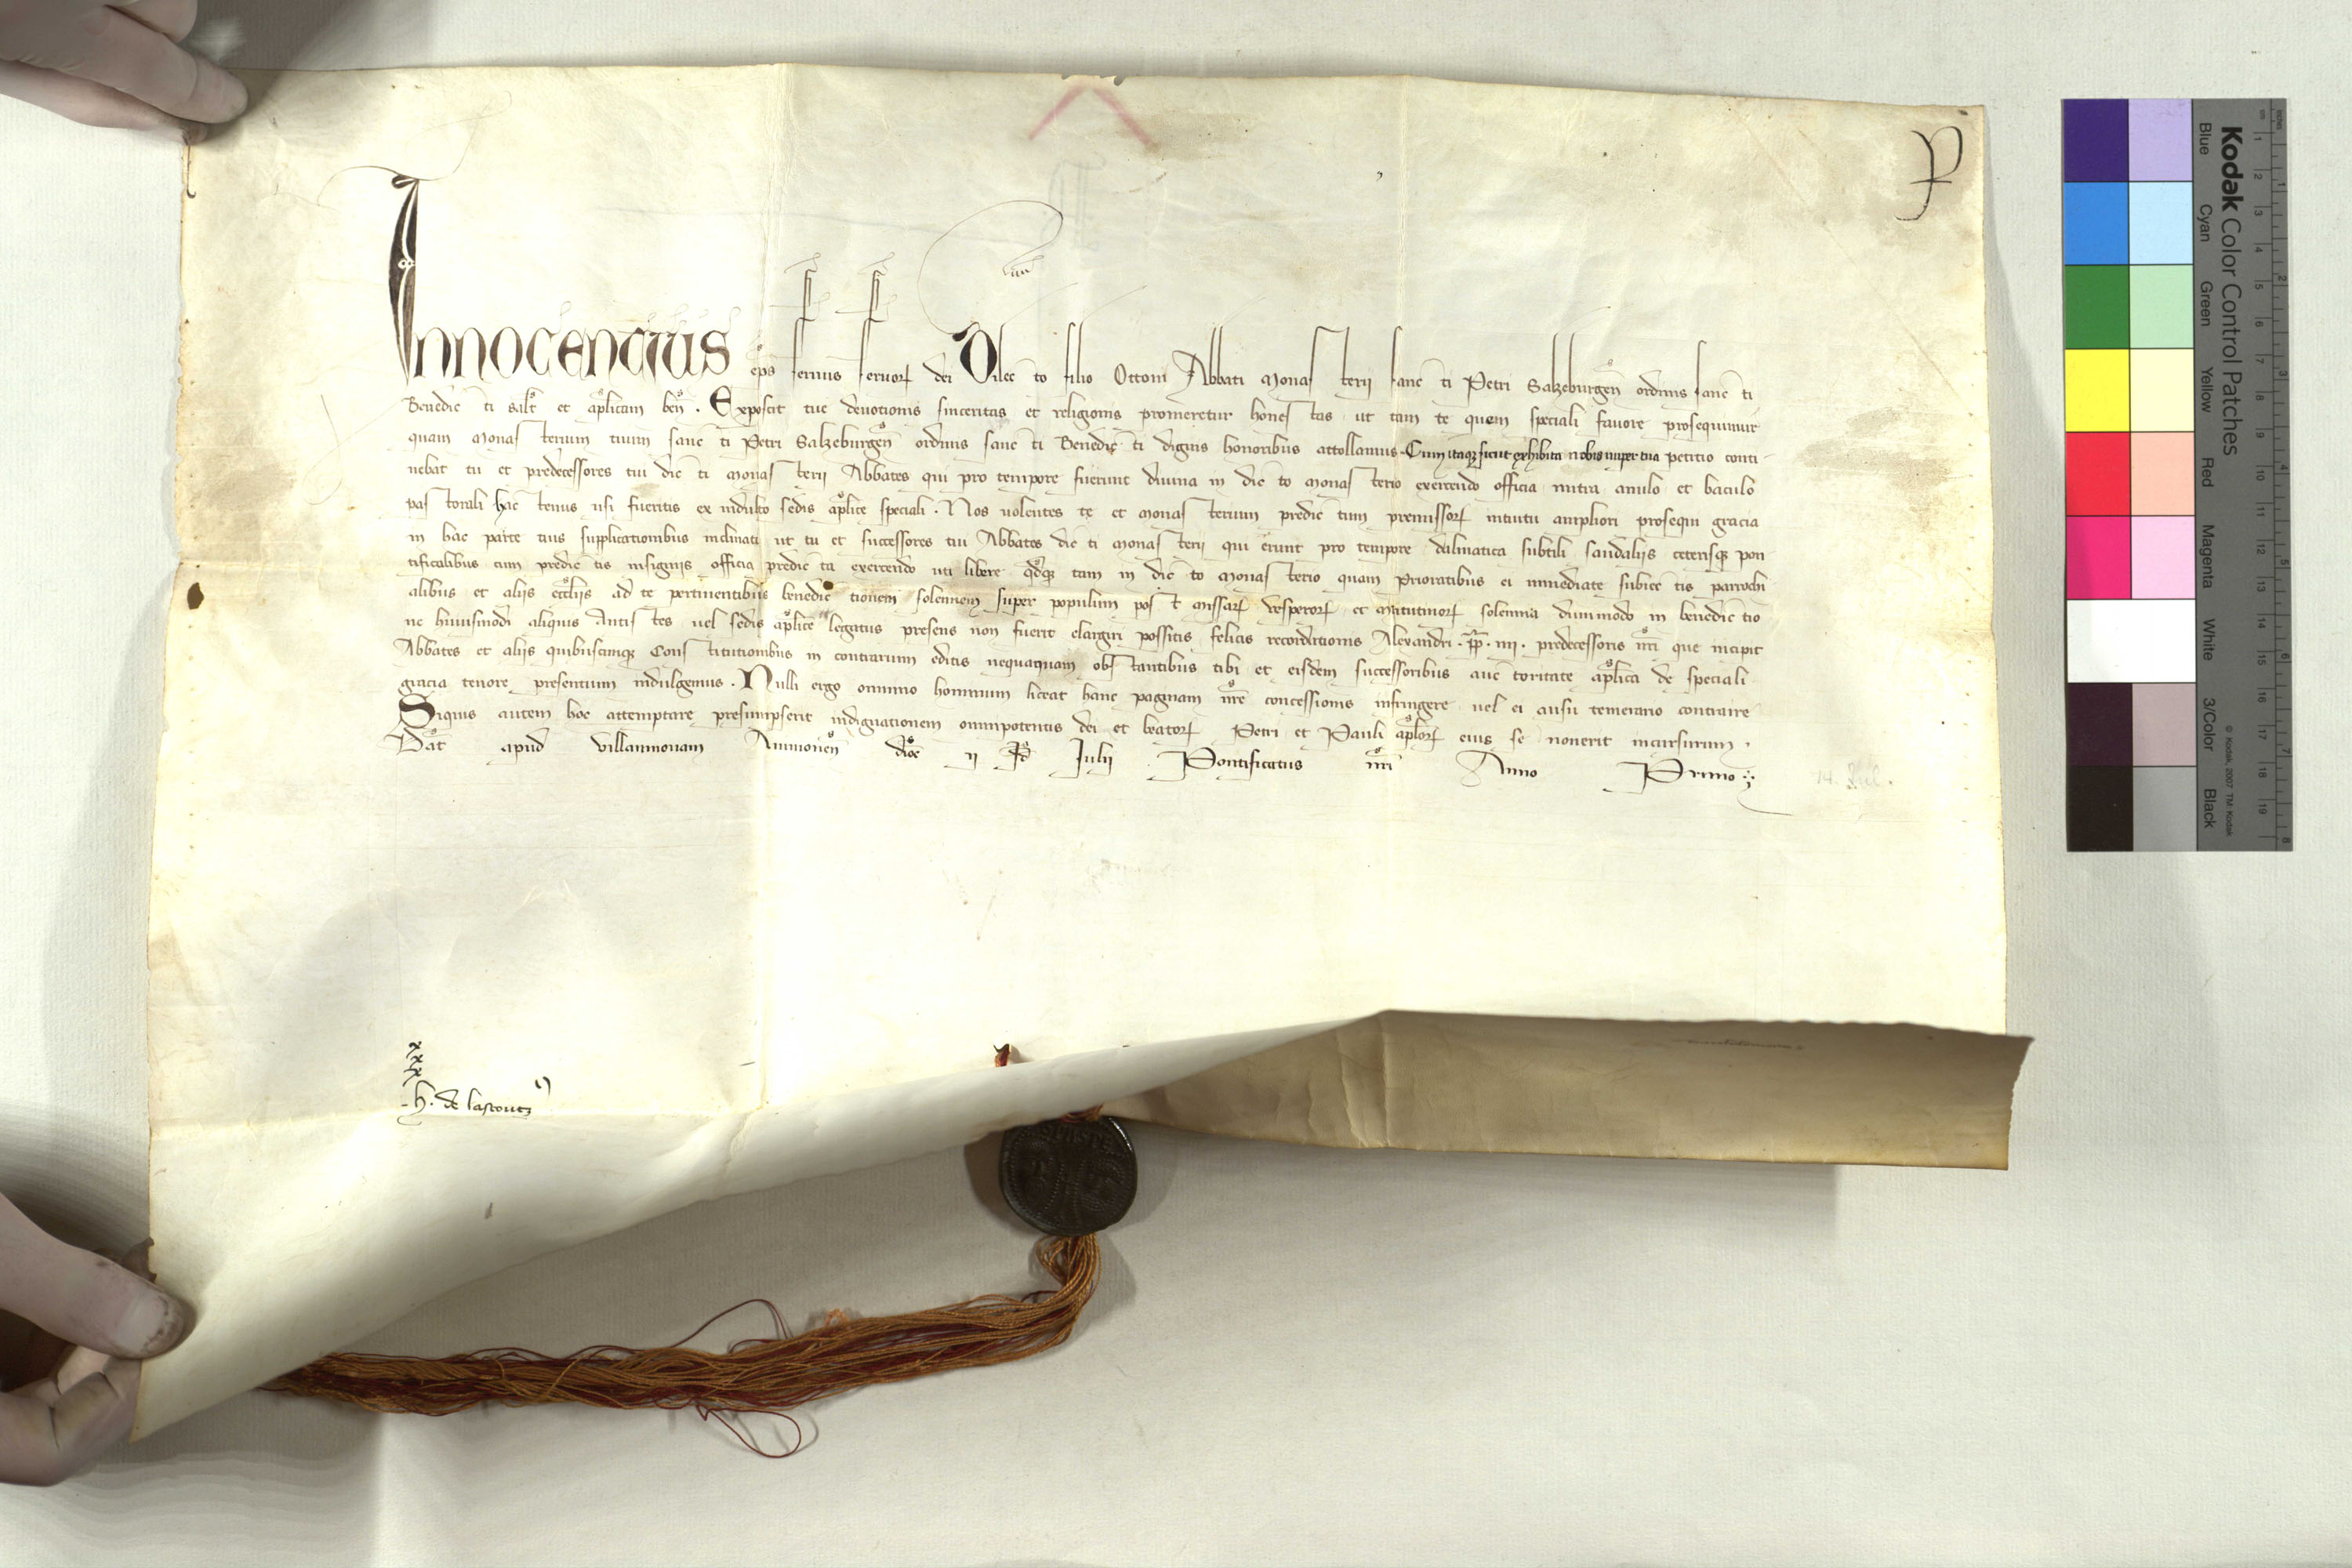 R
Innocencius ep̄s seruus seruoꝝ dei Dilecto filio Ottoni Abbati Monasterii sancti Petri Salzeburgeñ ordinis sancti
Benedicti salt̄ et ap̄licam beñ. Exposcit tue deuotionis sinceritas et religionis promeretur honestas ut tam te quem speciali fauore prosequimur
quam Monasterium tuum sancti Petri Salzeburgeñ ordinis sancti Benedicti dignis honoribus attollamus. Cum itaqꝫ sicut exhibita nobis nuper tua petitio conti-
nebat tu et predecessores tui dicti Monasterii Abbates qui pro tempore fuerunt diuina in dicto Monasterio exercendo officia mitra anulo et baculo
pastorali hactenus usi fueritis ex indulto sedis ap̄lice speciali. Nos uolentes te et Monasterium predictum premissoꝝ intuitu ampliori prosequi gracia
in hac parte tuis supplicationibus inclinati ut tu et successores tui Abbates dicti Monasterii qui erunt pro tempore dalmatica subtili sandaliis ceterisqꝫ pon-
tificalibus cum predictis insigniis officia predicta exercendo uti libere qđqꝫ tam in dicto Monasterio quam Prioratibus ei immediate subiectis parrochi
alibus et aliis eccl̄iis ad te pertinentibus benedictionem solennem super populum post missaꝝ vesperoꝝ et matutinoꝝ solennia dummodo in benedictio
ne huiusmodi aliquis Antistes uel sedis ap̄lice legatus presens non fuerit elargiri possitis felicis recordationis Alexandri. pp̄. iiii. predecessoris nr̄i que incipit
Abbates et aliis quibuscunqꝫ Constitutionibus in contrarium editis nequaquam obstantibus tibi et eisdem successoribus auctoritate ap̄lica de speciali
gracia tenore presentium indulgemus. Nulli ergo omnino hominum liceat hanc paginam nr̄e concessionis infringere uel ei ausu temerario contraire
Siquis autem hoc attemptare presumpserit indignationem omnipotentis dei et beatoꝝ Petri et Pauli ap̄loꝝ eius se nouerit incursurum.
Dat̄ apud Villamnouam Auinioneñ dioc̄ ii Id Julii Pontificatus nr̄i Anno Primo
14. Jul.
x
x
x
.h. de lastoutz
Kodak Color Control Patches
Blue Cyan Green Yellow Red Magenta White 3/Color Black
© Kodak, 2007 TM: Kodak
cm 1 2 3 4 5 6 7 8 9 10 11 12 13 14 15 16 17 18 19
inches 1 2 3 4 5 6 7 8